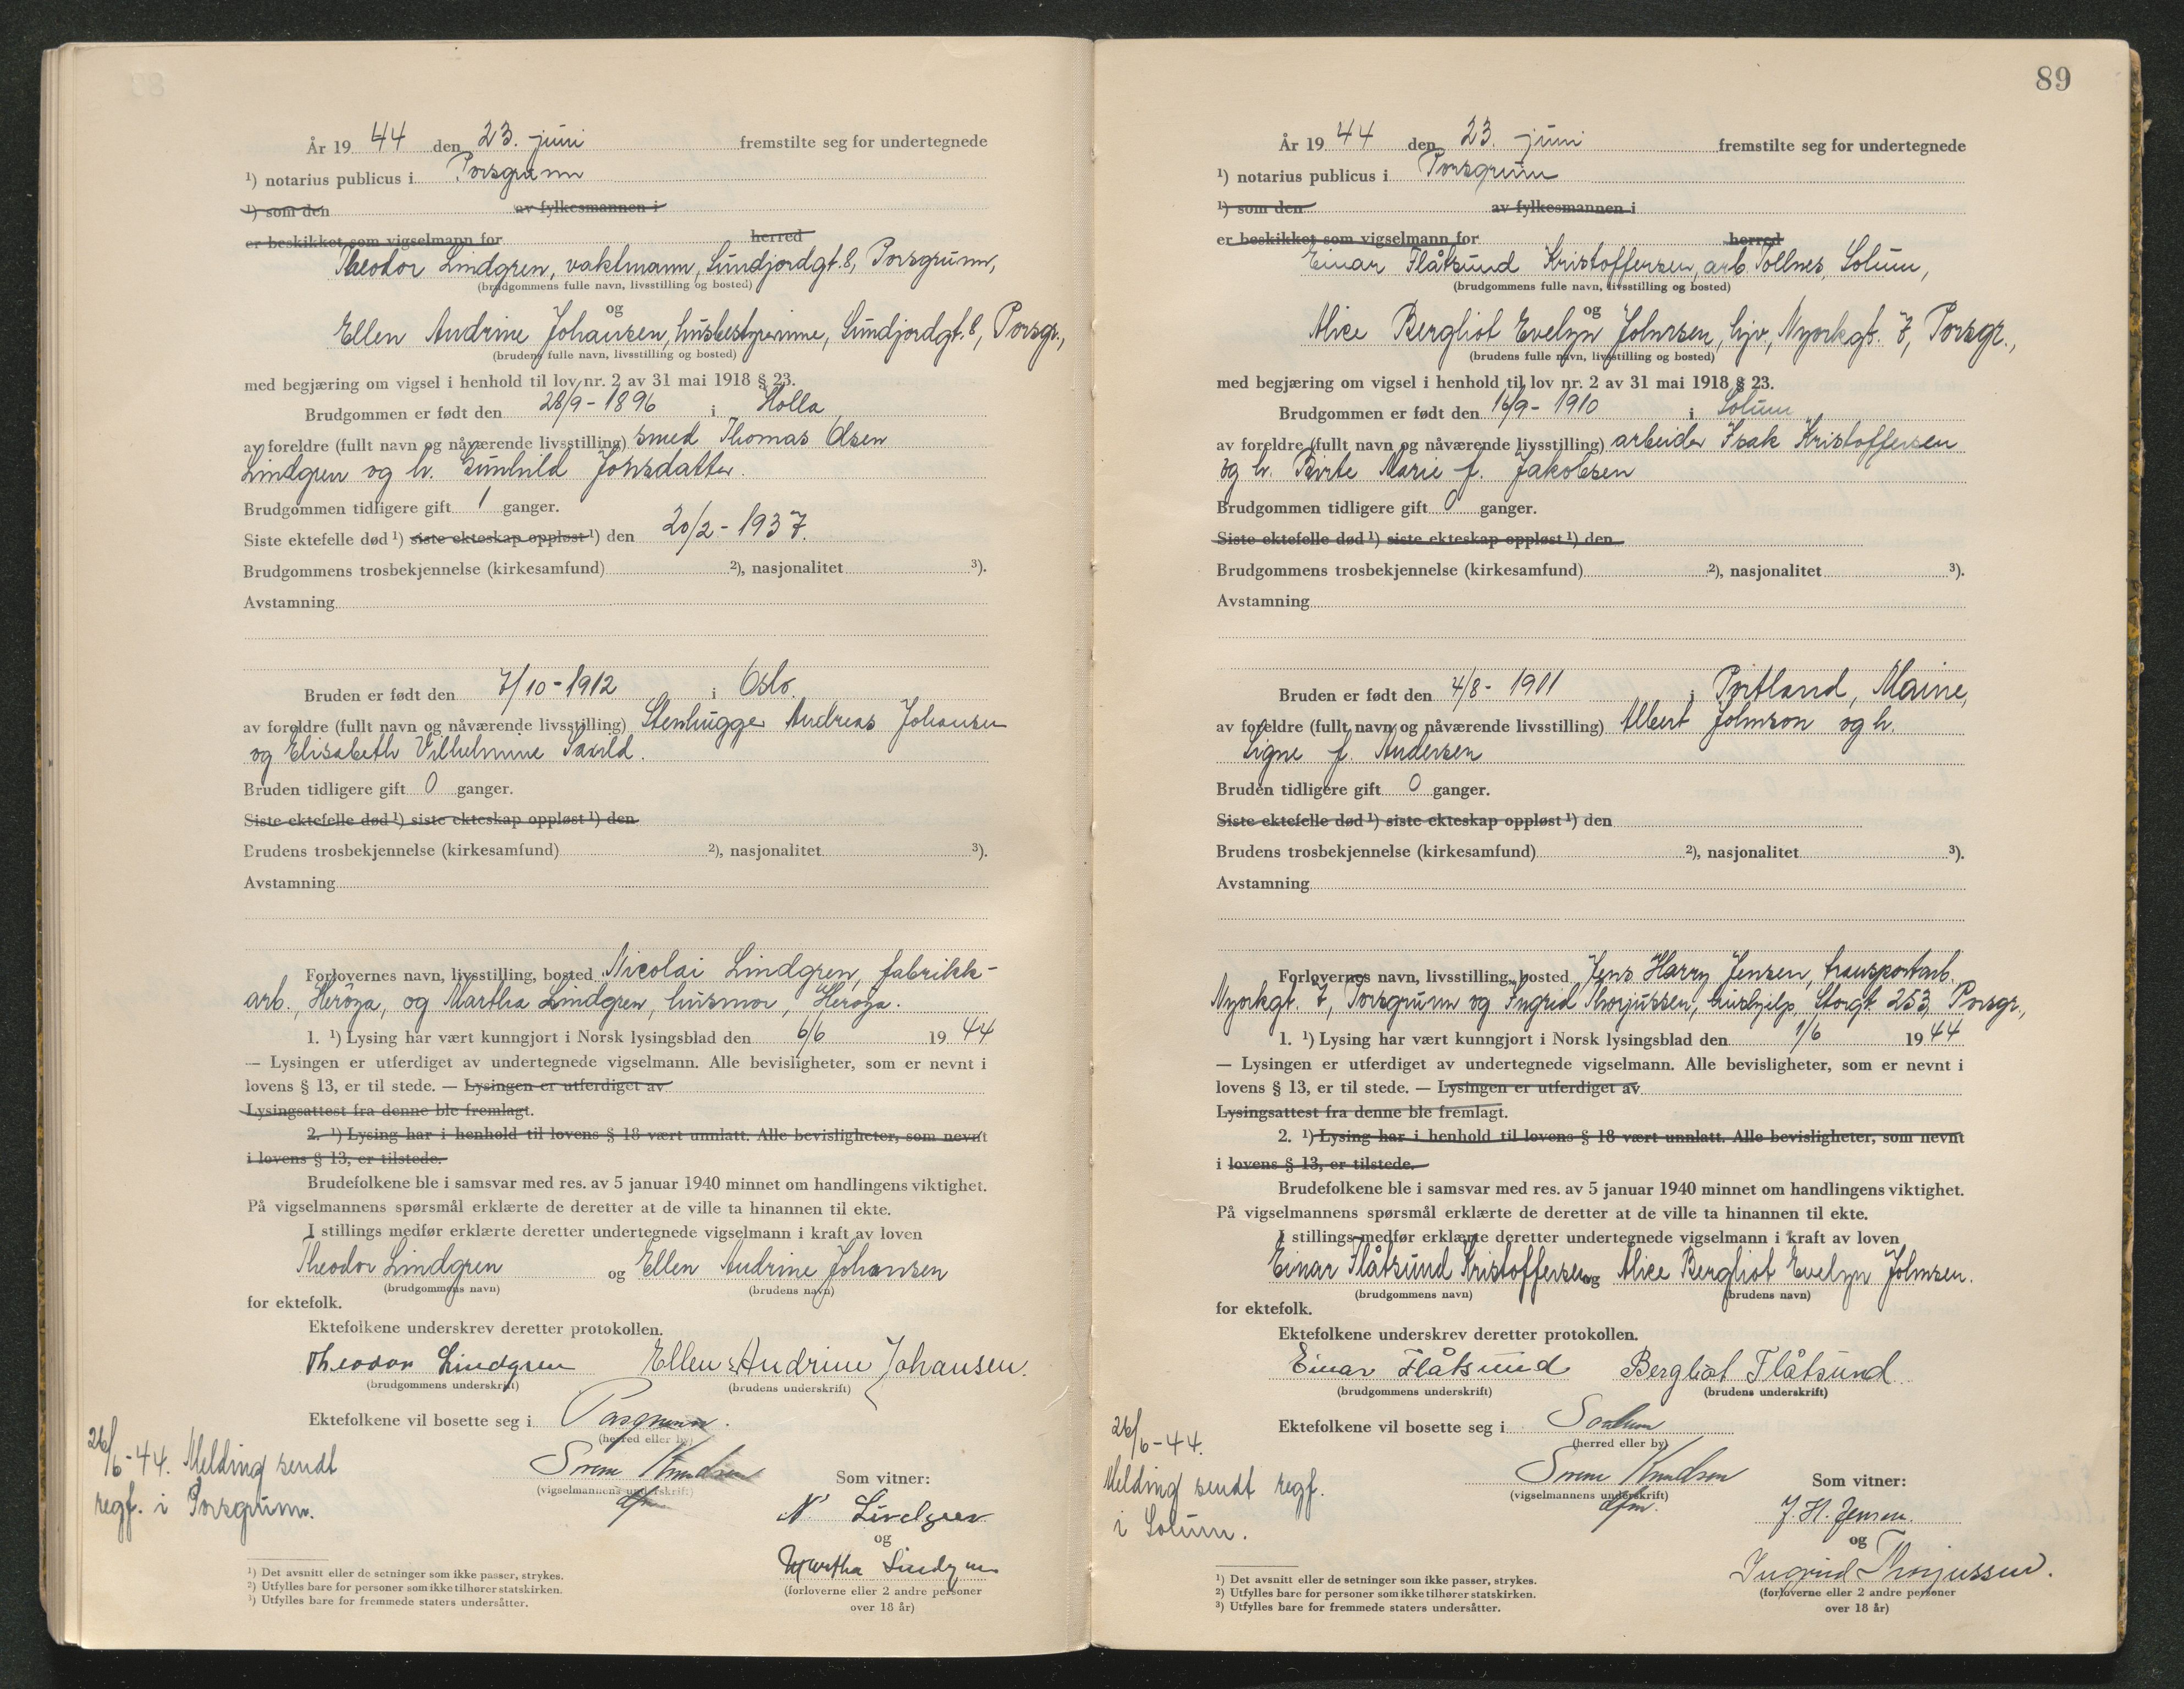 År 19 44 den 23. juni fremstilte seg for undertegnede
¹) notarius publicus i Porsgrunn
¹) som den av fylkesmannen i
er beskikket som vigselmann for herred
Theodor Lindgren, vaktmann, Sundjordgt. 8, Porsgrunn,
(brudgommens fulle navn, livsstilling og bosted)
og
Ellen Andrine Johansen, husbestyrerinne, Sundjordgt. 8, Porsgr.,
(brudens fulle navn, livsstilling og bosted)
med begjæring om vigsel i henhold til lov nr. 2 av 31 mai 1918 § 23.
Brudgommen er født den 28/9 - 1896 i Holla
av foreldre (fullt navn og nåværende livsstilling) smed Thomas Olsen
Lindgren og h. Gunhild Johnsdatter.
Brudgommen tidligere gift 1 ganger.
Siste ektefelle død ¹) siste ekteskap oppløst ¹) den 20/2 - 1937.
Brudgommens trosbekjennelse (kirkesamfund) ²), nasjonalitet ³).
Avstamning
Bruden er født den 7/10 - 1912 i Oslo.
av foreldre (fullt navn og nåværende livsstilling) Stenhugger Andreas Johansen
og Elisabeth Vilhelmine
Bruden tidligere gift 0 ganger.
Siste ektefelle død ¹) siste ekteskap oppløst ¹) den
Brudens trosbekjennelse (kirkesamfund) ²), nasjonalitet ³).
Avstamning
Forlovernes navn, livsstilling, bosted Nicolai Lindgren, fabrikk-
arb., Herøya, og Martha Lindgren, husmor, Herøya.
1. ¹) Lysing har vært kunngjort i Norsk lysingsblad den 6/6 19 44
— Lysingen er utferdiget av undertegnede vigselmann. Alle bevisligheter, som er nevnt i
lovens § 13, er til stede. — Lysingen er utferdiget av
Lysingsattest fra denne ble fremlagt.
2. ¹) Lysing har i henhold til lovens § 18 vært unnlatt. Alle bevisligheter, som nevnt
i lovens § 13, er tilstede.
Brudefolkene ble i samsvar med res. av 5 januar 1940 minnet om handlingens viktighet.
På vigselmannens spørsmål erklærte de deretter at de ville ta hinannen til ekte.
I stillings medfør erklærte deretter undertegnede vigselmann i kraft av loven
Theodor Lindgren og Ellen Andrine Johansen
(brudgommens navn) (brudens navn)
for ektefolk.
Ektefolkene underskrev deretter protokollen.
Theodor Lindgren Ellen Andrine Johansen.
(brudgommens underskrift) (brudens underskrift)
Ektefolkene vil bosette seg i Porsgrunn.
(herred eller by)
26/6-44. Melding sendt
regf. i Porsgrunn.
Sverre Knudsen
(vigselmannens underskrift)
dfm
Som vitner:
N Lindgren
og
Martha Lindgren
(forloverne eller 2 andre personer
over 18 år)
¹) Det avsnitt eller de setninger som ikke passer, strykes.
²) Utfylles bare for personer som ikke tilhører statskirken.
³) Utfylles bare for fremmede staters undersåtter.
89
År 19 44 den 23. juni fremstilte seg for undertegnede
¹) notarius publicus i Porsgrunn
¹) som den av fylkesmannen i
er beskikket som vigselmann for herred
Einar Flåtsund Kristoffersen, arb. Tollnes, Solum,
(brudgommens fulle navn, livsstilling og bosted)
og
Alice Bergliot Evelyn Johnsen, hjv., Myorkgt. 7, Porsgr.,
(brudens fulle navn, livsstilling og bosted)
med begjæring om vigsel i henhold til lov nr. 2 av 31 mai 1918 § 23.
Brudgommen er født den 16/9 - 1910 i Solum
av foreldre (fullt navn og nåværende livsstilling) arbeider Isak Kristoffersen
og h. Birte Marie f. Jakobsen
Brudgommen tidligere gift 0 ganger.
Siste ektefelle død ¹) siste ekteskap oppløst ¹) den
Brudgommens trosbekjennelse (kirkesamfund) ²), nasjonalitet ³).
Avstamning
Bruden er født den 4/8 - 1911 i Portland, Maine,
av foreldre (fullt navn og nåværende livsstilling) Albert Johnson og h.
Signe f. Andersen
Bruden tidligere gift 0 ganger.
Siste ektefelle død ¹) siste ekteskap oppløst ¹) den
Brudens trosbekjennelse (kirkesamfund) ²), nasjonalitet ³).
Avstamning
Forlovernes navn, livsstilling, bosted Jens Harry Jensen, transportarb.
Myorkgt. 7, Porsgrunn og Ingrid Thorjussen, hushjelp, Storgt. 253, Porsgr.,
1. ¹) Lysing har vært kunngjort i Norsk lysingsblad den 1/6 19 44
— Lysingen er utferdiget av undertegnede vigselmann. Alle bevisligheter, som er nevnt i
lovens § 13, er til stede. — Lysingen er utferdiget av
Lysingsattest fra denne ble fremlagt.
2. ¹) Lysing har i henhold til lovens § 18 vært unnlatt. Alle bevisligheter, som nevnt
i lovens § 13, er tilstede.
Brudefolkene ble i samsvar med res. av 5 januar 1940 minnet om handlingens viktighet.
På vigselmannens spørsmål erklærte de deretter at de ville ta hinannen til ekte.
I stillings medfør erklærte deretter undertegnede vigselmann i kraft av loven
Einar Flåtsund Kristoffersen og Alice Bergliot Evelyn Johnsen.
(brudgommens navn) (brudens navn)
for ektefolk.
Ektefolkene underskrev deretter protokollen.
Einar Flåtsund Bergliot Flåtsund
(brudgommens underskrift) (brudens underskrift)
Ektefolkene vil bosette seg i Solum
(herred eller by)
26/6-44.
Melding sendt regf.
i Solum.
Sverre Knudsen
(vigselmannens underskrift)
dfm.
Som vitner:
J. H. Jensen.
og
Ingrid Thorjussen.
(forloverne eller 2 andre personer
over 18 år)
¹) Det avsnitt eller de setninger som ikke passer, strykes.
²) Utfylles bare for personer som ikke tilhører statskirken.
³) Utfylles bare for fremmede staters undersåtter.